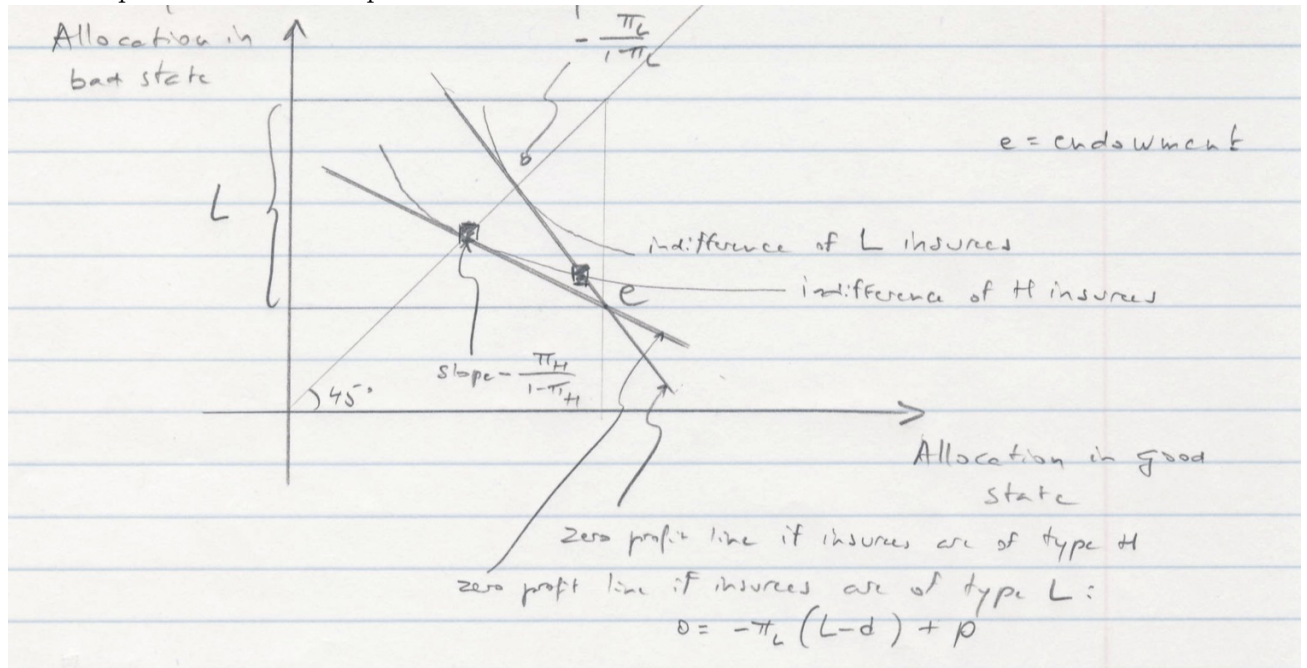 Allocation in
bad state
- π_L / 1-π_L
e = endowment
L
indifference of L insurees
e
indifference of H insurees
slope - π_H / 1-π_H
45°
Allocation in good
state
Zero profit line if insurees are of type H
zero profit line if insurees are of type L :
0 = -π_L (L-d) + p